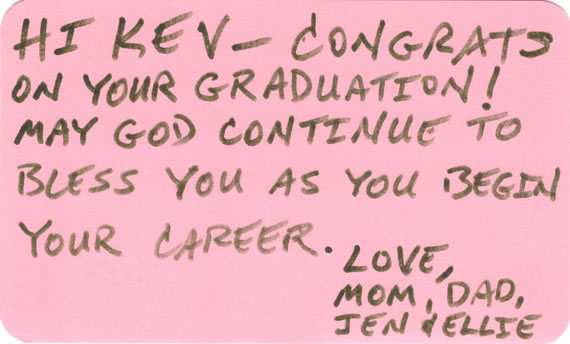 HI KEV– CONGRATS
ON YOUR GRADUATION!
MAY GOD CONTINUE TO
BLESS YOU AS YOU BEGIN
YOUR CAREER.
LOVE,
MOM, DAD,
JEN & ELLIE